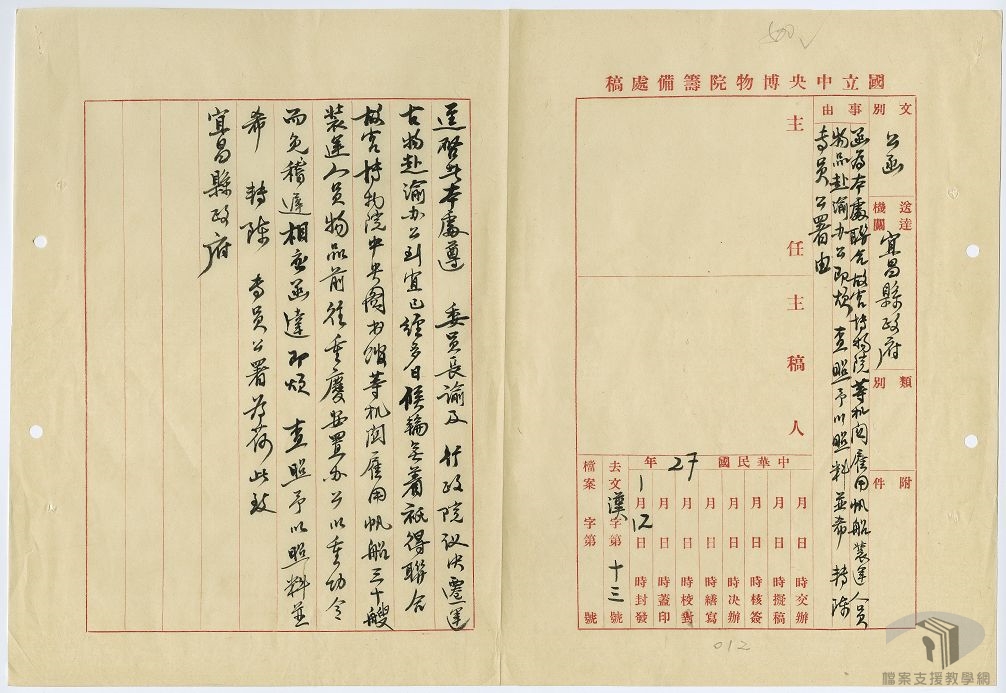 500
國立中央博物院籌備處稿
文別 公函
送達機關 宜昌縣政府
類別
附件
事由
函為本處聯合故宮博物院等机関雇用帆船裝運人員
物品赴渝办公即煩 查照予以照料並希 轉陳
專員公署由
主任
主稿人
中華民國27年
月 日 時交辦
月 日 時擬稿
月 日 時核簽
月 日 時決辦
月 日 時繕寫
月 日 時校對
月 日 時蓋印
1月12日 時封發
去文漢字第十三號
檔案 字第 號
012
逕啓者本處遵 委員長諭及 行政院议决遷運
古物赴渝办公到宜已經多日候輪無着祇得聯合
故宮博物院中央圖书館等机関雇用帆船三十艘
裝運人員物品前往重慶安置办公以重功令
而免稽遲相應函達即煩 查照予以照料並
希 轉陳 專員公署為荷此致
宜昌縣政府
檔案支援教學網